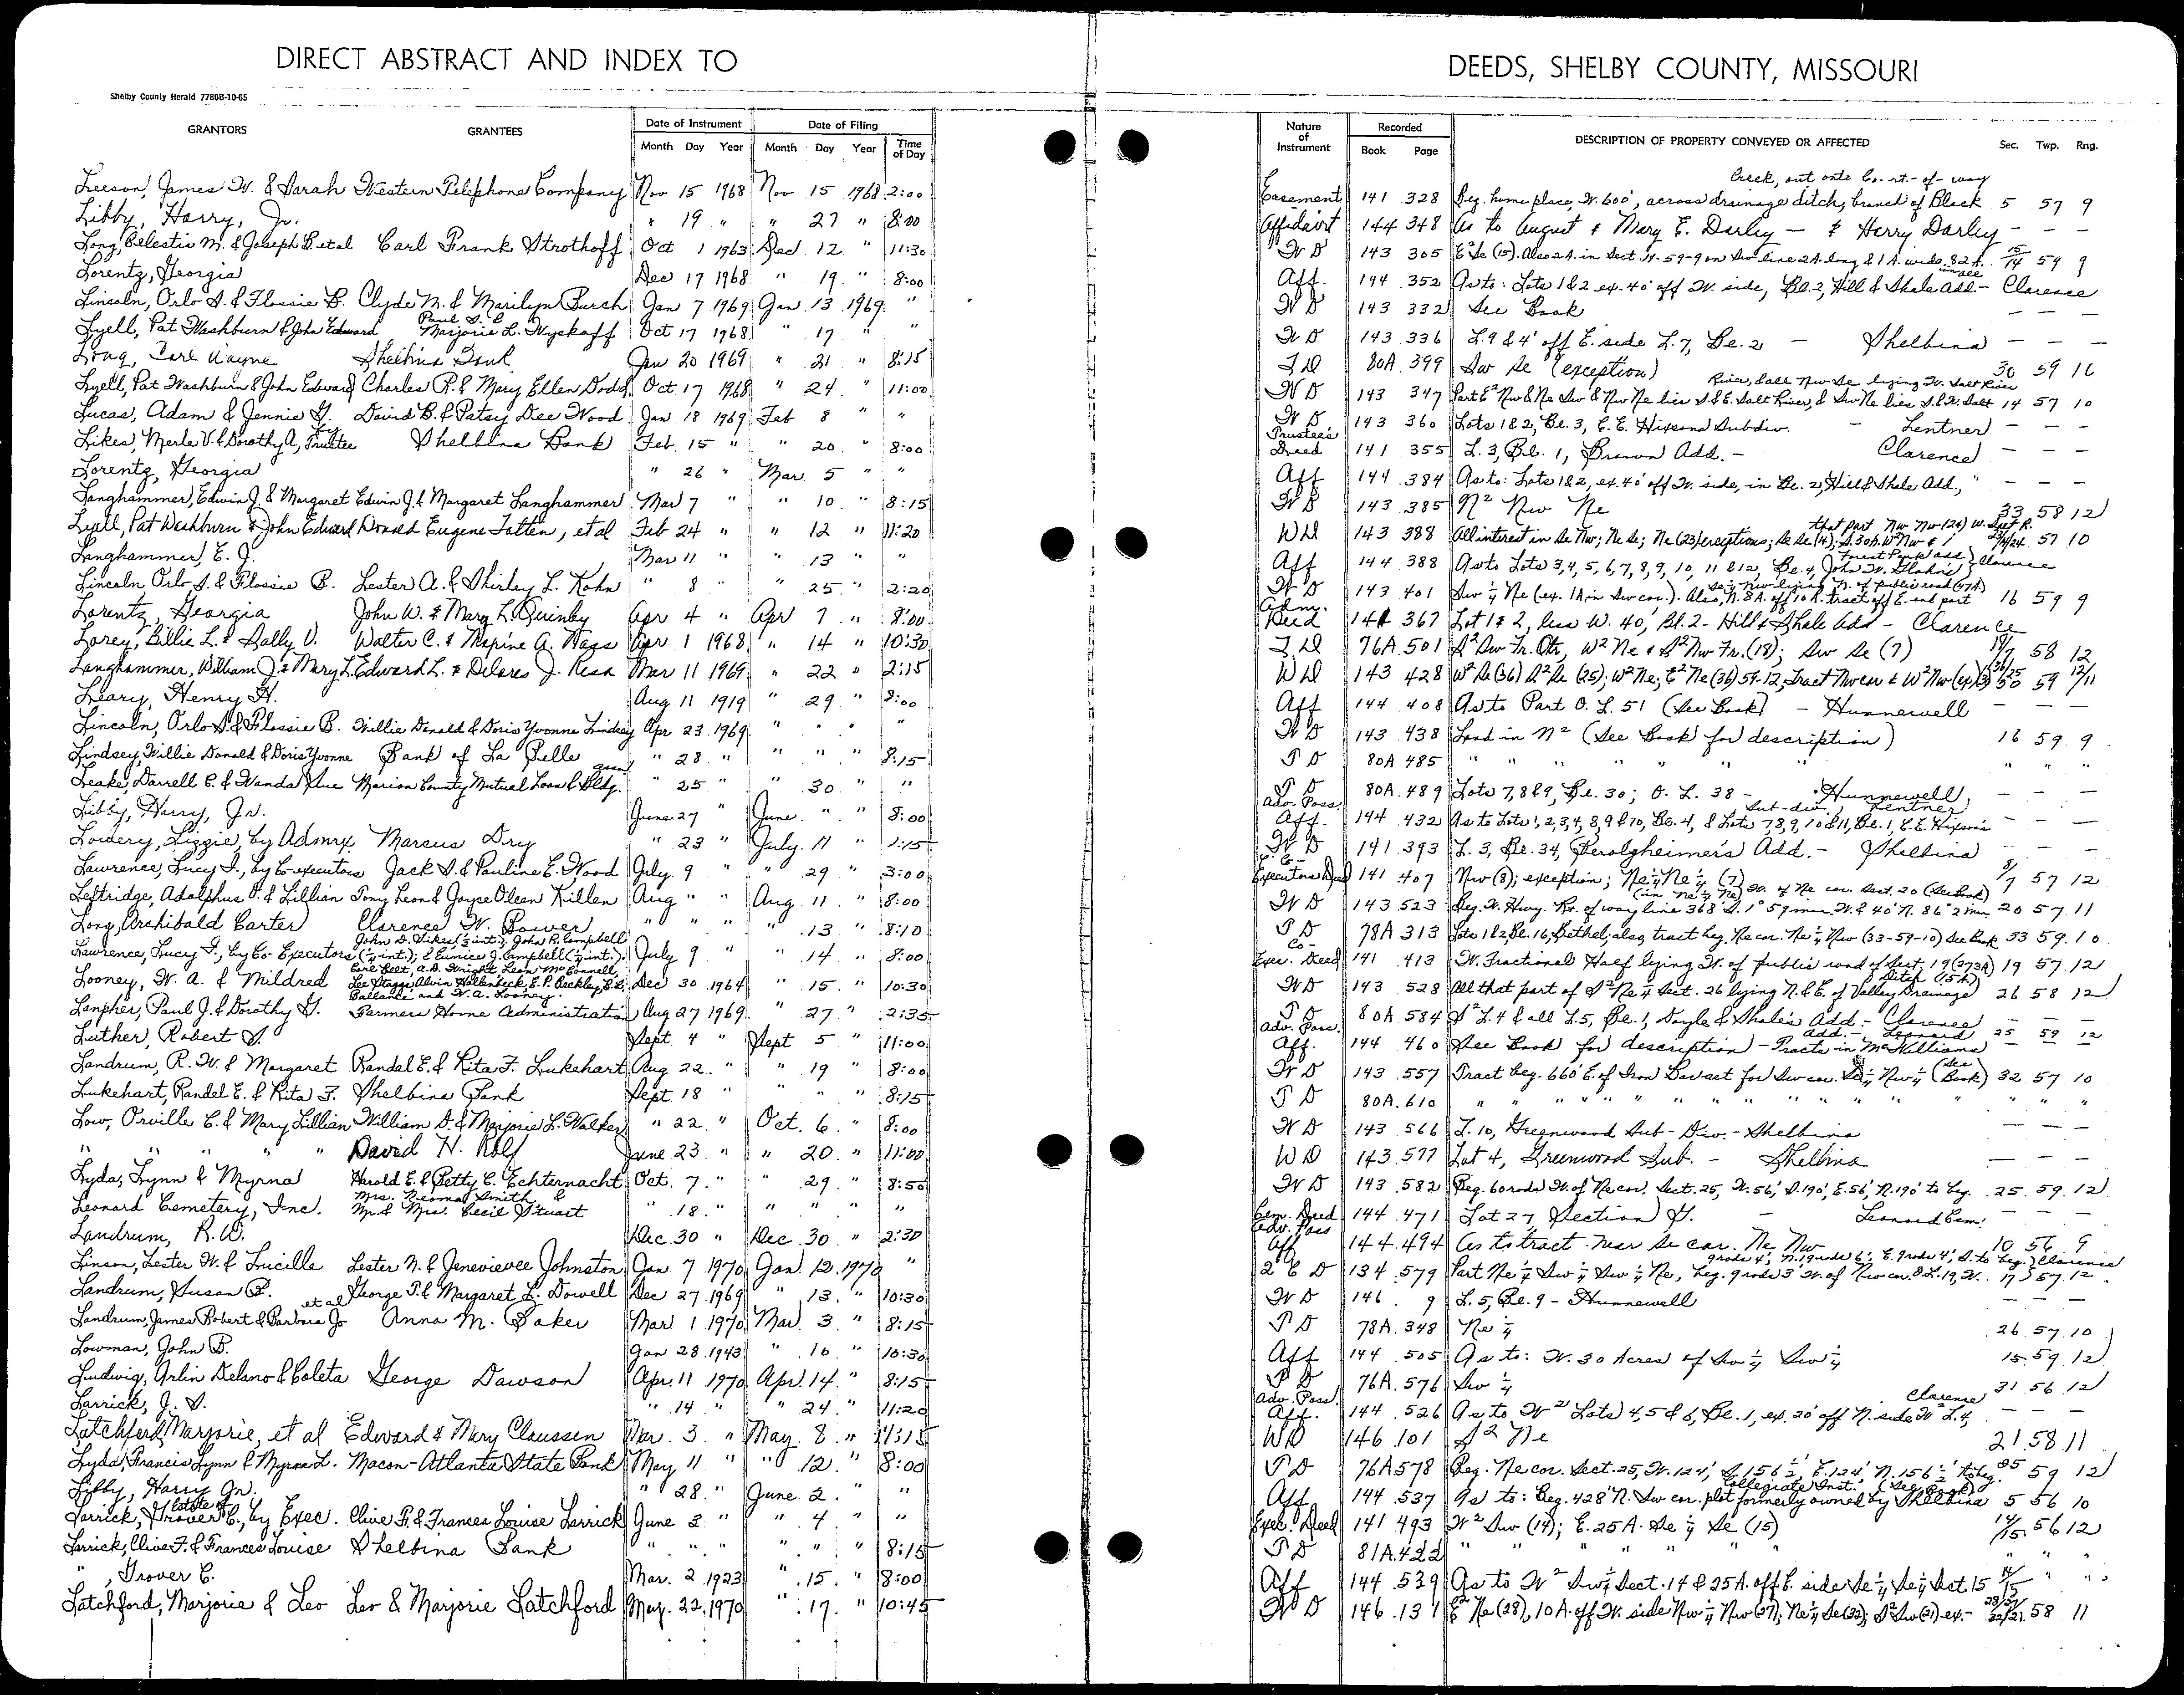 DIRECT ABSTRACT AND INDEX TO
DEEDS, SHELBY COUNTY, MISSOURI
Shelby County Herald 7780B-10-65
GRANTORS GRANTEES Date of Instrument Date of Filing Time of Day
Month Day Year Month Day Year
Nature of Instrument Recorded DESCRIPTION OF PROPERTY CONVEYED OR AFFECTED Sec. Twp. Rng.
Book Page
Creek, out onto Co. rt.-of-way
Leeson, James W. & Sarah Western Telephone Company Nov 15 1968 Nov 15 1968 2:00 Easement 141 328 Beg. home place, W. 600', across drainage ditch, branch of Black 5 57 9
Libby, Harry, Jr. " 19 " " 27 " 8:00 Affidavit 144 348 As to August & Mary E. Darley — & Harry Darley - - -
Long, Celestia M. & Joseph B. et al Carl Frank Strothoff Oct 1 1963 Dec 12 " 11:30 W D 143 305 E² Se (15). Also 2 A. in Sect. 14-59-9 on Sw line 2 A. long & 1 A. wide. 82 A. in all 15/14 59 9
Lorentz, Georgia Dec 17 1968 " 19 " 8:00 Aff. 144 352 As to: Lots 1 & 2 ex. 40' off W. side, Bl. 2, Hill & Shale Add. - Clarence
Lincoln, Orlo S. & Flossie B. Clyde M. & Marilyn Burch Jan 7 1969 Jan 13 1969 " W D 143 332 See Book - - -
Lyell, Pat Washburn & John Edward Paul S. & Marjorie L. Wyckoff Oct 17 1968 " 17 " " W D 143 336 L. 9 & 4' off E. side L. 7, Bl. 2 - Shelbina - - -
Long, Carl Wayne Shelbina Bank Jan 20 1969 " 21 " 8:15 T D 80A 399 Sw Se (exception) 30 59 10
River, & all Nw Se lying W. Salt River
Lyell, Pat Washburn & John Edward Charles R. & Mary Ellen Dodd Oct 17 1968 " 24 " 11:00 W D 143 347 Part E² Nw & Ne Sw & Nw Ne lies S. & E. Salt River, & Sw Ne lies S. & W. Salt 14 57 10
Lucas, Adam & Jennie G. David B. & Patsy Dee Wood Jan 18 1969 Feb 8 " " W D 143 360 Lots 1 & 2, Bl. 3, C. E. Hixsons Subdiv. - Lentner - - -
Likes, Merle V. & Dorothy A, by Trustee Shelbina Bank Feb 15 " " 20 " 8:00 Trustee's Deed 141 355 L. 3, Bl. 1, Brown Add. - Clarence - - -
Lorentz, Georgia " 26 " Mar 5 " " Aff 144 384 As to: Lots 1 & 2, ex. 40' off W. side, in Bl. 2, Hill & Shale Add., " - - -
Langhammer, Edwin J. & Margaret Edwin J. & Margaret Langhammer Mar 7 " " 10 " 8:15 W D 143 385 N² Nw Ne 33 58 12
that part Nw Nw (24) W. Salt R.
Lyell, Pat Washburn & John Edward Donald Eugene Totten, et al Feb 24 " " 12 " 11:20 WD 143 388 All interest in Se Nw; Ne Se; Ne (23) exceptions; Se Se (14); S. 30 A. W² Nw & 23/14/24 57 10
Forest Park add. Clarence
Langhammer, E. J. Mar 11 " " 13 " " Aff 144 388 As to Lots 3, 4, 5, 6, 7, 8, 9, 10, 11 & 12, Bl. 4, John W.
Se ¼ Nw lying N. of public road (47A)
Lincoln Orlo S. & Flossie B. Lester A. & Shirley L. Kohn " 8 " " 25 " 2:20 W D 143 401 Sw ¼ Ne (ex. 1 A in Sw cor.). Also, N. 8 A. off 10 A. tract off E. end part 16 59 9
Lorentz, Georgia John W. & Mary L. Quinby Apr 4 " Apr 7 " 8:00 Adm. Deed 141 367 Lot 1 & 2, less W. 40, Bl. 2 - Hill & Shale Add - Clarence
Lorey, Billie L. & Sally V. Walter C. & Maxine A. Nass Apr 1 1968 " 14 " 10:30 T D 76A 501 S² Sw Fr. Qtr, W² Ne & S² Nw Fr. (18); Sw Se (7) 18/7 58 12
Langhammer, William J. & Mary L. Edward L. & Delores J. Resa Mar 11 1969 " 22 " 2:15 W D 143 428 W² Se (36) S² Se (25); W² Ne; E² Ne (36) 59-12, Tract Nw cor & W² Nw 59 12/11
Leary, Henry H. Aug 11 1919 " 29 " 8:00 Aff 144 408 As to Part O. L. 51 (See Book) - Hunnewell - - -
Lincoln, Orlo S. & Flossie B. Willie Donald & Doris Yvonne Lindsey Apr 23 1969 " " " " W D 143 438 Land in N² (See Book for description) 16 59 9
Lindsey, Willie Donald & Doris Yvonne Bank of La Belle " 28 " " " " 8:15 T D 80A 485 " " " " " " " " "
Leake, Darrell C. & Wanda Sue Marion County Mutual Loan & Bldg. assn " 25 " " 30 " " T D 80A 489 Lots 7, 8 & 9, Bl. 30; O. L. 38 - Hunnewell - - -
Sub-div., Lentner
Libby, Harry, Jr. June 27 " June " " 8:00 Adv. Poss. Aff. 144 432 As to Lots 1, 2, 3, 4, 8, 9 & 10, Bl. 4, & Lots 7, 8, 9, 10 & 11, Bl. 1, C. E. Hixson's - - -
Lowery, Lizzie, by Admrx Marcus Dry " 23 " July 11 " 1:15 W D 141 393 L. 3, Bl. 34, Gerolzheimer's Add. - Shelbina - - -
Lawrence, Lucy I., by Co-executors Jack S. & Pauline E. Wood July 9 " " 29 " 3:00 Co-Executors Deed 141 407 Nw (8); exception; Ne ¼ Ne ¼ (7) 8/7 57 12
(in Ne ¼ Ne) W. of Ne cor. Sect. 20 (See Book)
Leftridge, Adolphus O. & Lillian Tony Leon & Joyce Oleen Killen Aug " " Aug 11 " 8:00 W D 143 523 Beg. W. Hwy. Rt. of way line 368' S. 1° 59 min. W. & 40' N. 86° 2 min 20 57 11
Long, Archibald Carter Clarence W. Bower " " " " 13 " 8:10 T D 78A 313 Lots 1 & 2, Bl. 16, Bethel; also, tract beg. Ne cor. Ne ¼ Nw (33-59-10) See Book 33 59 10
John D. Likes (½ int.); John R. Campbell
Lawrence, Lucy I., by Co-Executors (¼ int.); & Eunice J. Campbell (¼ int.). July 9 " " 14 " 8:00 Co-Exec. Deed 141 413 W. Fractional Half lying W. of public road of Sect. 19 (273A) 19 57 12
Earl Belt, A. D. Wright, Leon McConnell,
Looney, W. A. & Mildred Lee Staggs, Alvin Hollenbeck, E. P. Beckley Dec 30 1964 " 15 " 10:30 W D 143 528 All that part of S² Ne ¼ Sect. 26 lying N. & E. of Valley Drainage Ditch (15A) 26 58 12
Ballance and W. A. Looney.
Lanpher, Paul J. & Dorothy G. Farmers Home Administration Aug 27 1969 " 27 " 2:35 T D 80A 584 S² L. 4 & all L. 5, Bl. 1, Doyle & Shale's Add. - Clarence - - -
Add. - Leonard
Luther, Robert S. Sept. 4 " Sept 5 " 11:00 Adv. Poss. Aff. 144 460 See Book for description - Tracts in McWilliams 25 59 12
Landrum, R. W. & Margaret Randel E. & Rita F. Lukehart Aug 22 " " 19 " 8:00 W D 143 557 Tract beg. 660' E. of Iron Bar set for Sw cor. Se ¼ Nw ¼ (See Book) 32 57 10
Lukehart, Randel E. & Rita F. Shelbina Bank Sept. 18 " " " 8:15 T D 80A 610 " " " " " " " "
Low, Orville C. & Mary Lillian William D. & Marjorie L. Walker " 22 " Oct. 6 " 8:00 W D 143 566 L. 10, Greenwood Sub-Div. - Shelbina - - -
" " " " David H. Rolf June 23 " " 20 " 11:00 W D 143 577 Lot 4, Greenwood Sub. - Shelbina - - -
Lyda, Lynn & Myrna Harold E. & Betty C. Echternacht Oct. 7 " " 29 " 8:50 W D 143 582 Beg. 60 rods W. of Ne cor. Sect. 25, W. 56', S. 190', E. 56', N. 190' to beg. 25 59 12
Leonard Cemetery, Inc. Mrs. Neoma Smith & Mr. & Mrs. Cecil Stuart " 18 " " " " " Cem. Deed 144 471 Lot 27, Section G. - Leonard Cem. - - -
Landrum, R. W. Dec 30 " Dec 30 " 2:30 Adv. Poss Aff 144 494 As to tract near Se cor. Ne Nw 10 56 9
grods 4', N. 19 rods 6', E. 9 rods 4', S. to beg. Clarence
Linson, Lester W. & Lucille Lester N. & Jenevievee Johnston Jan 7 1970 Jan 12 1970 " 2 E D 134 579 Part Ne ¼ Sw ¼ Sw ¼ Ne, beg. 9 rods 3' W. of Nw cor. O. L. 19, W. 17 57 12
Landrum, Susan B. et al George T. & Margaret L. Dowell Dec 27 1969 " 13 " 10:30 W D 146 9 L. 5, Bl. 9 - Hunnewell - - -
Landrum, James Robert & Barbara Jo Anna M. Baker Mar 1 1970 Mar. 3 " 8:15 T D 78A 348 Ne ¼ 26 57 10
Lowman, John B. Jan 28 1943 " 16 " 10:30 Aff 144 505 As to: W. 30 Acres of Sw ¼ Sw ¼ 15 59 12
Ludwig, Arlin Delano & Coleta George Dawson Apr. 11 1970 Apr. 14 " 8:15 T D 76A 576 Sw ¼ 31 56 12
Larrick, J. S. " 14 " " 24 " 11:20 Adv. Poss. Aff. 144 526 As to W² Lots 4, 5 & 6, Bl. 1, ex. 20' off N. side W² L. 4, Clarence - - -
Latchford, Marjorie, et al Edward & Mary Claussen Mar. 3 " May. 8 " 11:15 WD 146 101 S² Ne 21 58 11
Lyda, Francis Lynn & Myrna L. Macon-Atlanta State Bank May 11 " " 12 " 8:00 T D 76A 578 Beg. Ne cor. Sect. 25, W. 124', S. 156 ½', E. 124', N. 156 ½' to beg. 25 59 12
Collegiate Inst. (See Book)
Libby, Harry Jr. " 28 " June 2 " " Aff 144 537 As to: Beg. 428' N. Sw cor. plot formerly owned by Shelbina 5 56 10
Larrick, Grover C., Estate of by Exec. Clive F. & Frances Louise Larrick June 3 " " 4 " " Exec. Deed 141 493 W² Sw (14); E. 25 A. Se ¼ Se (15) 14/15 56 12
Larrick, Clive F. & Frances Louise Shelbina Bank " " " " " " 8:15 T D 81A 422 " " " " " " "
" , Grover C. Mar. 2 1923 " 15 " 8:00 Aff 144 539 As to W² Sw ¼ Sect. 14 & 25 A. off E. side Se ¼ Se ¼ Sect. 15 14/15 " "
Latchford, Marjorie & Leo Leo & Marjorie Latchford May. 22 1970 " 17 " 10:45 W D 146 131 E² Ne (28), 10 A. off W. side Nw ¼ Nw (27); Ne ¼ Se (32); S² Sw (21) ex. - 58 11